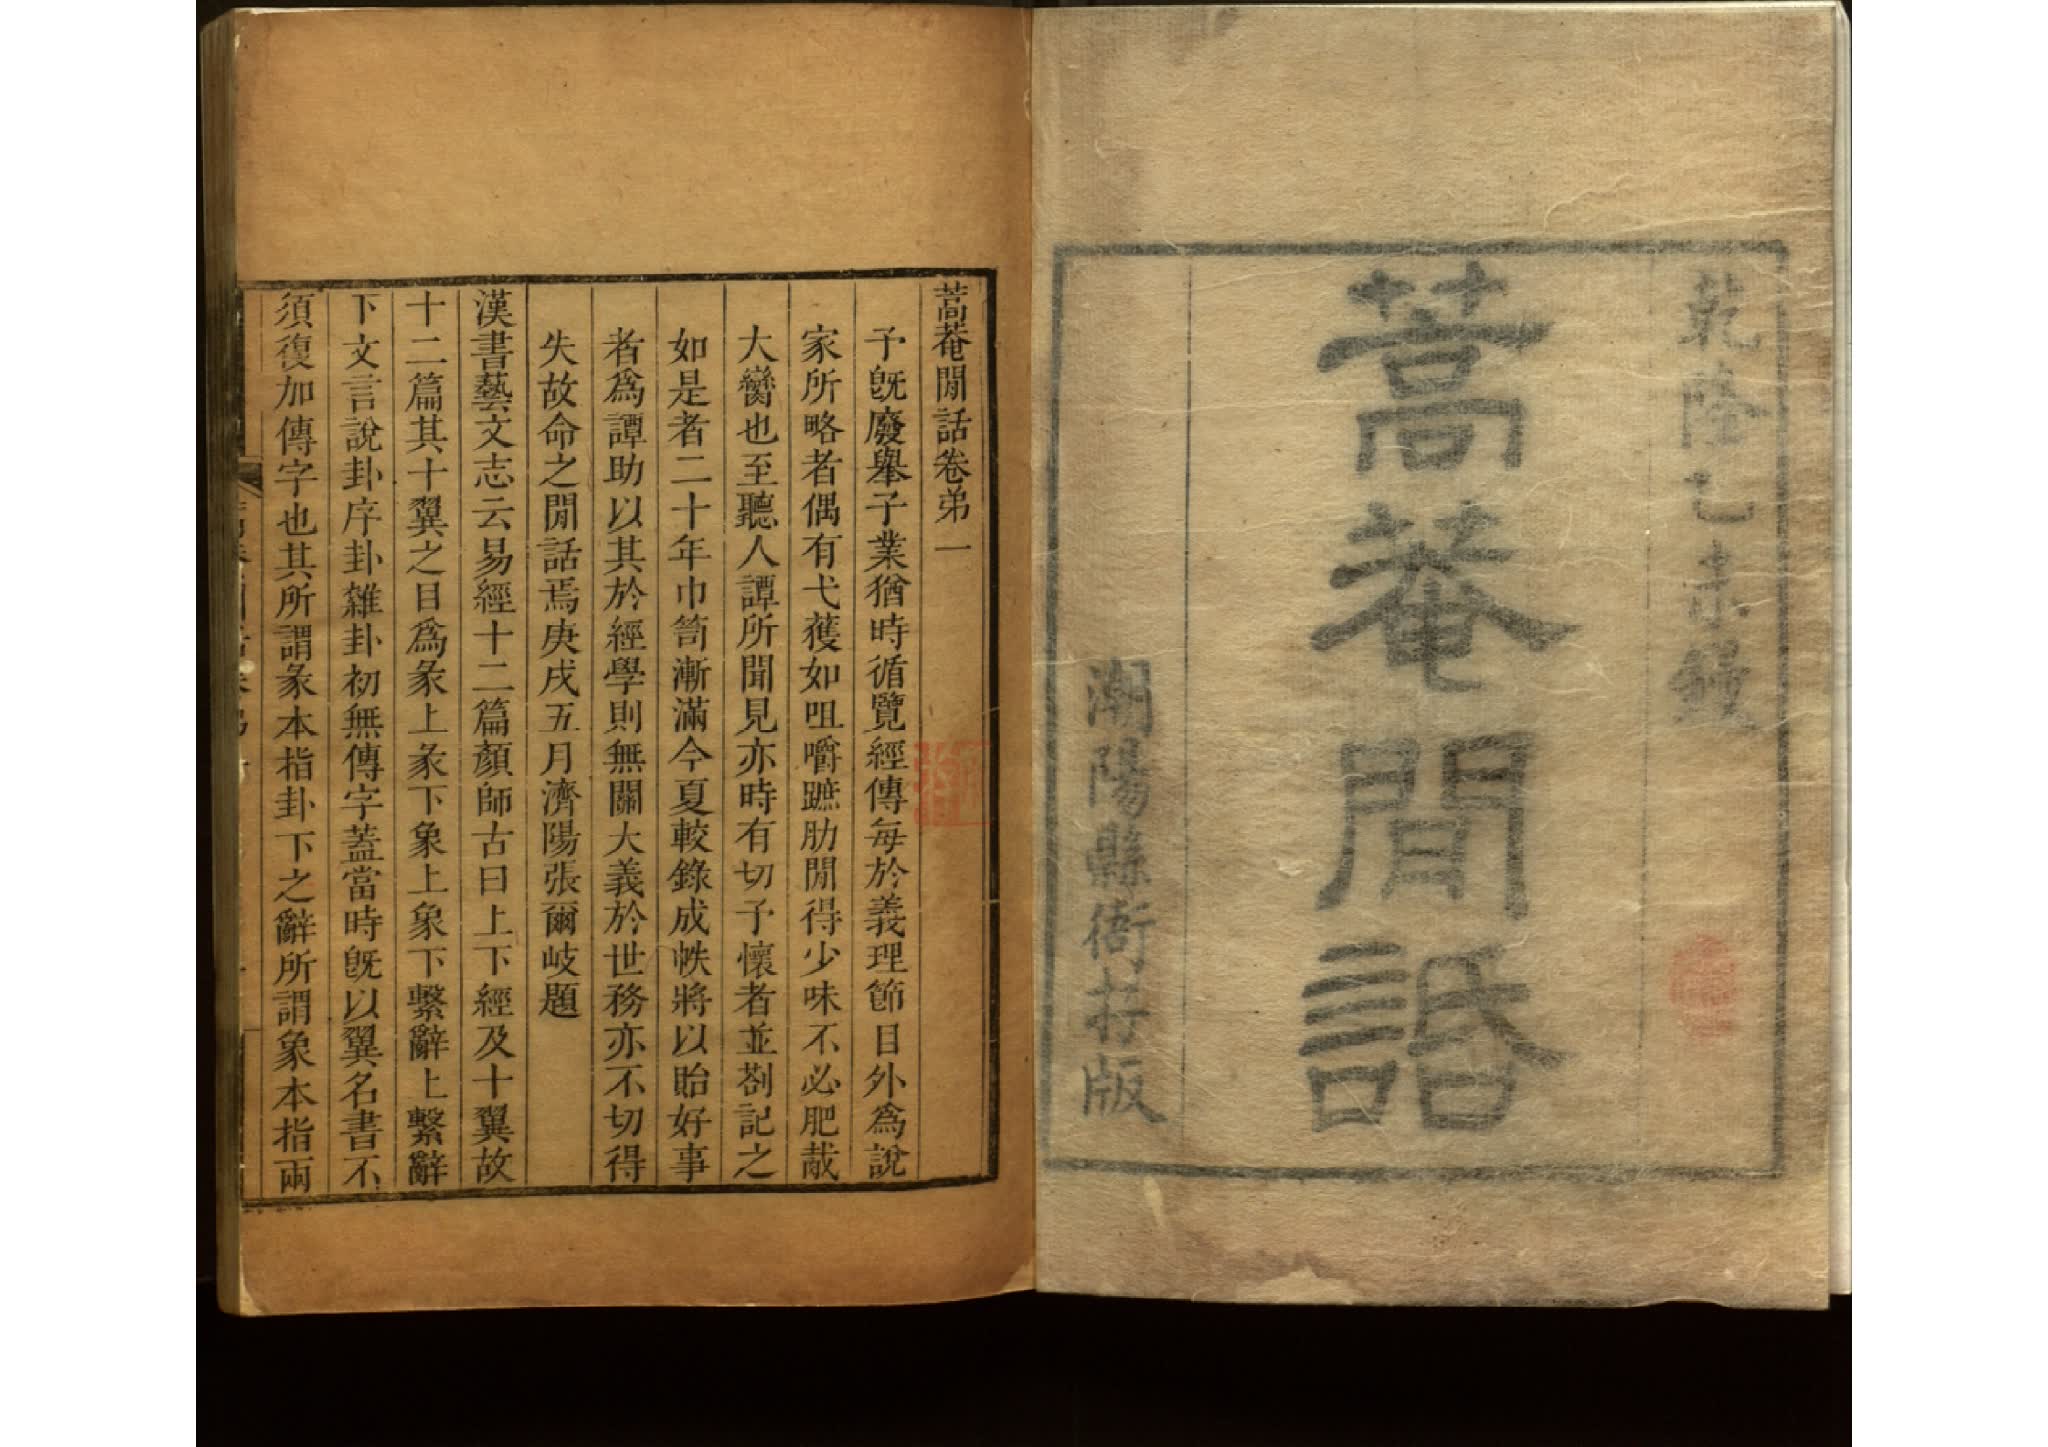 乾隆乙未鐫
蒿菴閒話
潮陽縣衙存版
蒿菴閒話卷弟一
予旣廢舉子業猶時循覽經傳每於義理節目外爲說
家所略者偶有弋獲如咀嚼蹠肋閒得少味不必肥胾
大臠也至聽人譚所聞見亦時有切予懷者並劄記之
如是者二十年巾笥漸滿今夏較錄成帙將以貽好事
者爲譚助以其於經學則無關大義於世務亦不切得
失故命之閒話焉庚戌五月濟陽張爾岐題
漢書藝文志云易經十二篇顏師古曰上下經及十翼故
十二篇其十翼之目爲彖上彖下象上象下繫辭上繫辭
下文言說卦序卦雜卦初無傳字蓋當時旣以翼名書不
須復加傳字也其所謂彖本指卦下之辭所謂象本指兩